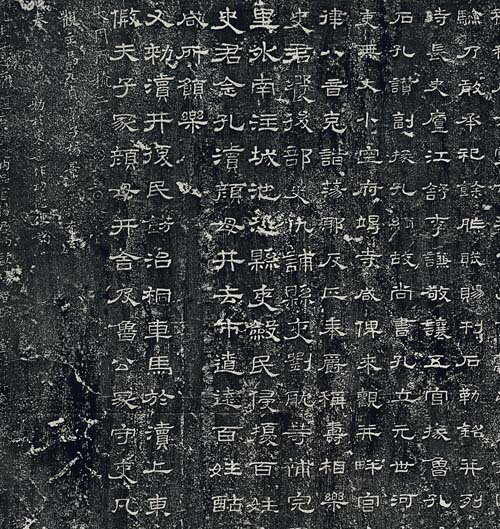 驗乃敢承祀餘胙賦賜刊石勒銘并列
時長史廬江舒李謙敬讓五官掾魯孔
石孔讚副掾孔綱故尚書孔立元世河
吏無大小空府竭寺咸俾來觀并畔官
律八音克諧蕩邪反正奉爵稱壽相樂
史君饗後部史仇誧縣吏劉耽等補完
里外南注城池恐縣吏斂民侵擾百姓
史君念孔瀆顏母井去市遼遠百姓酤
咸所願樂
又勑瀆井復民餝治桐車馬於瀆上東
假夫子冢顏母井舍及魯公冢守吏凡